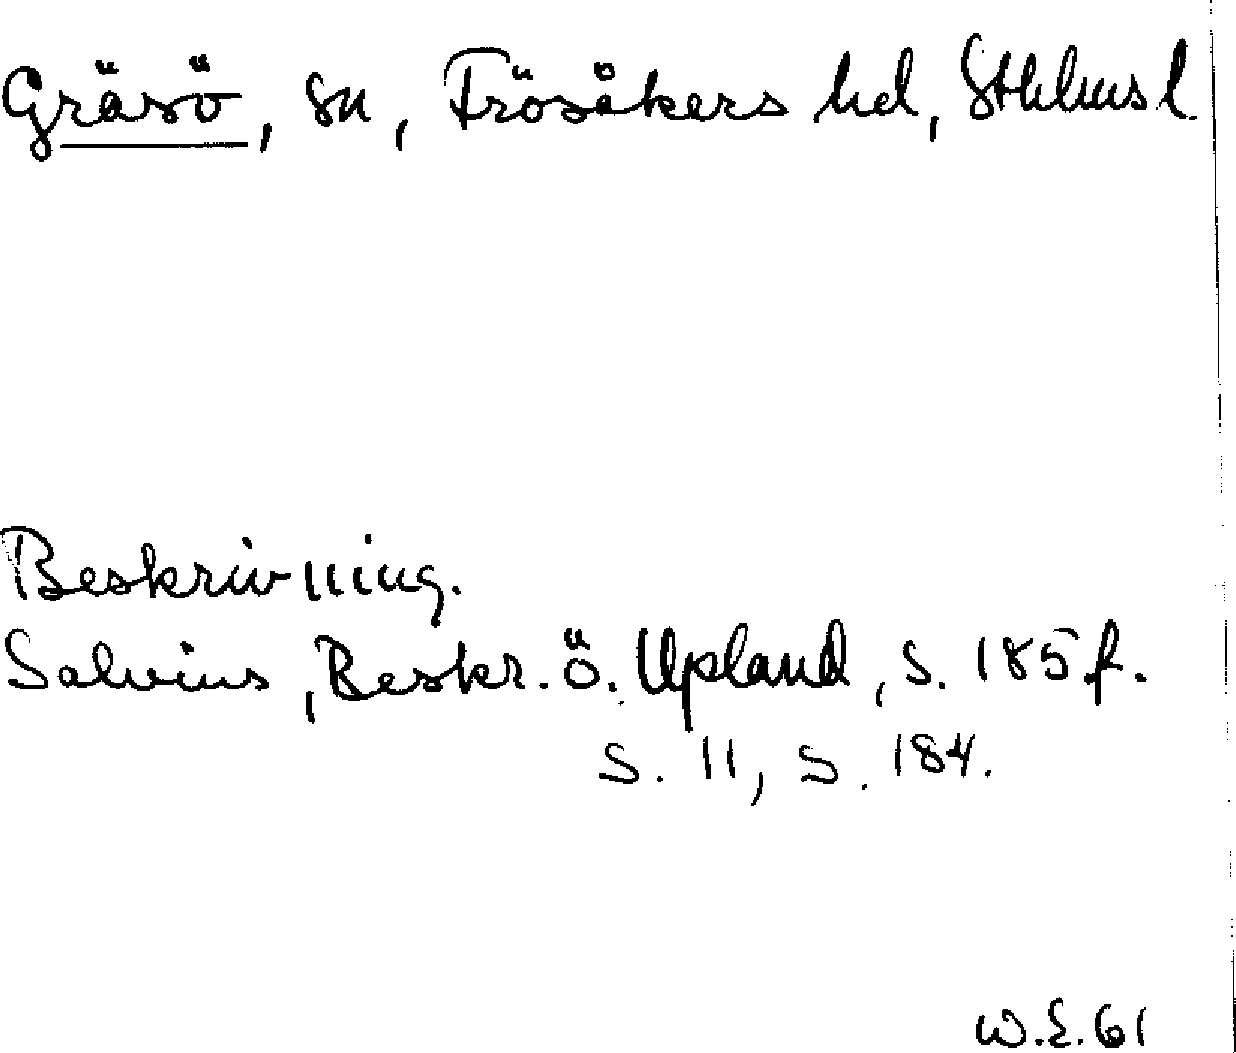 Gräsö, sn, Frösåkers hd, Sthlms l.
Beskrivning.
Salvius, Beskr. ö. Upland, s. 185 f.
s. 11, s. 184.
W.E. 61